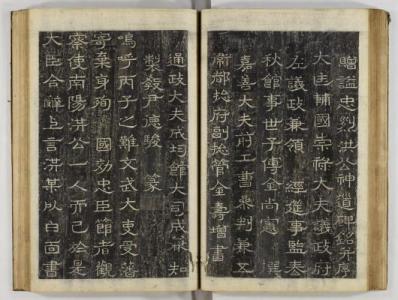 贈諡忠烈洪公神道碑銘幷序
大匡輔國崇祿大夫議政府
左議政兼領 經筵事監春
秋館事世子傅金尚憲 撰
嘉善大夫前工曹參判兼五
衛都摠府副摠管金壽增書
通政大夫成均館大司成兼知
製敎尹德駿 篆
嗚呼丙子之難文武大吏受藩
寄棄身殉 國効忠臣節者觀
察使南陽洪公一人而已於是
大臣合辭上言洪某以白面書